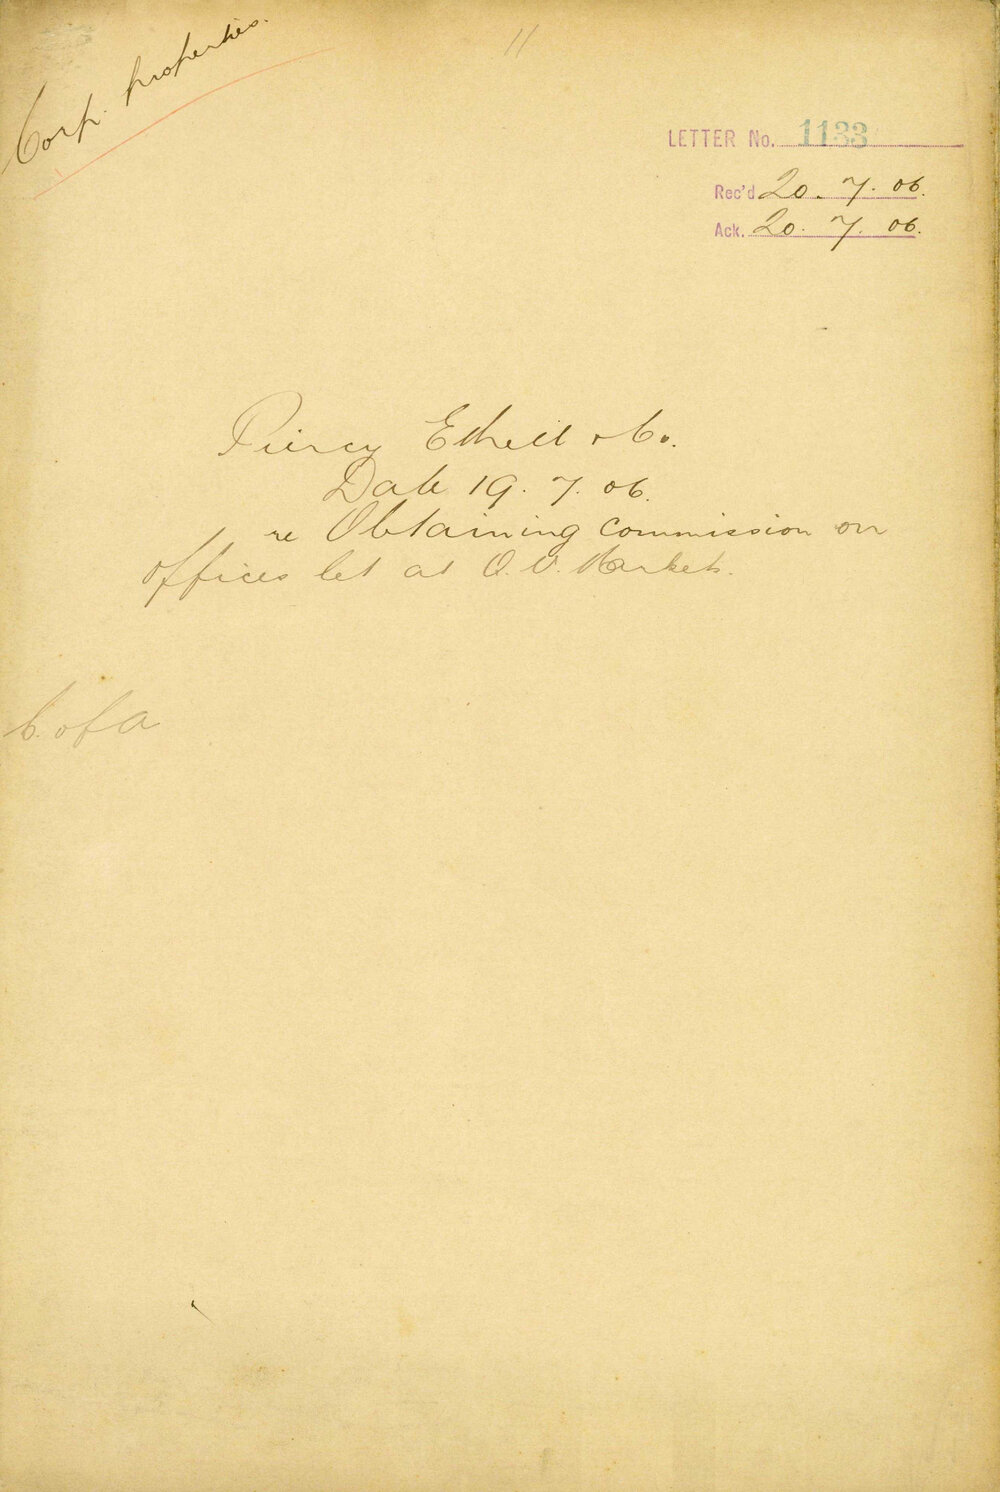 Corp. properties.
11
LETTER No. 1133
Rec'd 20. 7. 06.
Ack. 20. 7. 06.
Piercy Ethell & Co.
Date 19. 7. 06.
re Obtaining commission on
offices let at Q.V. Markets.
C. of A